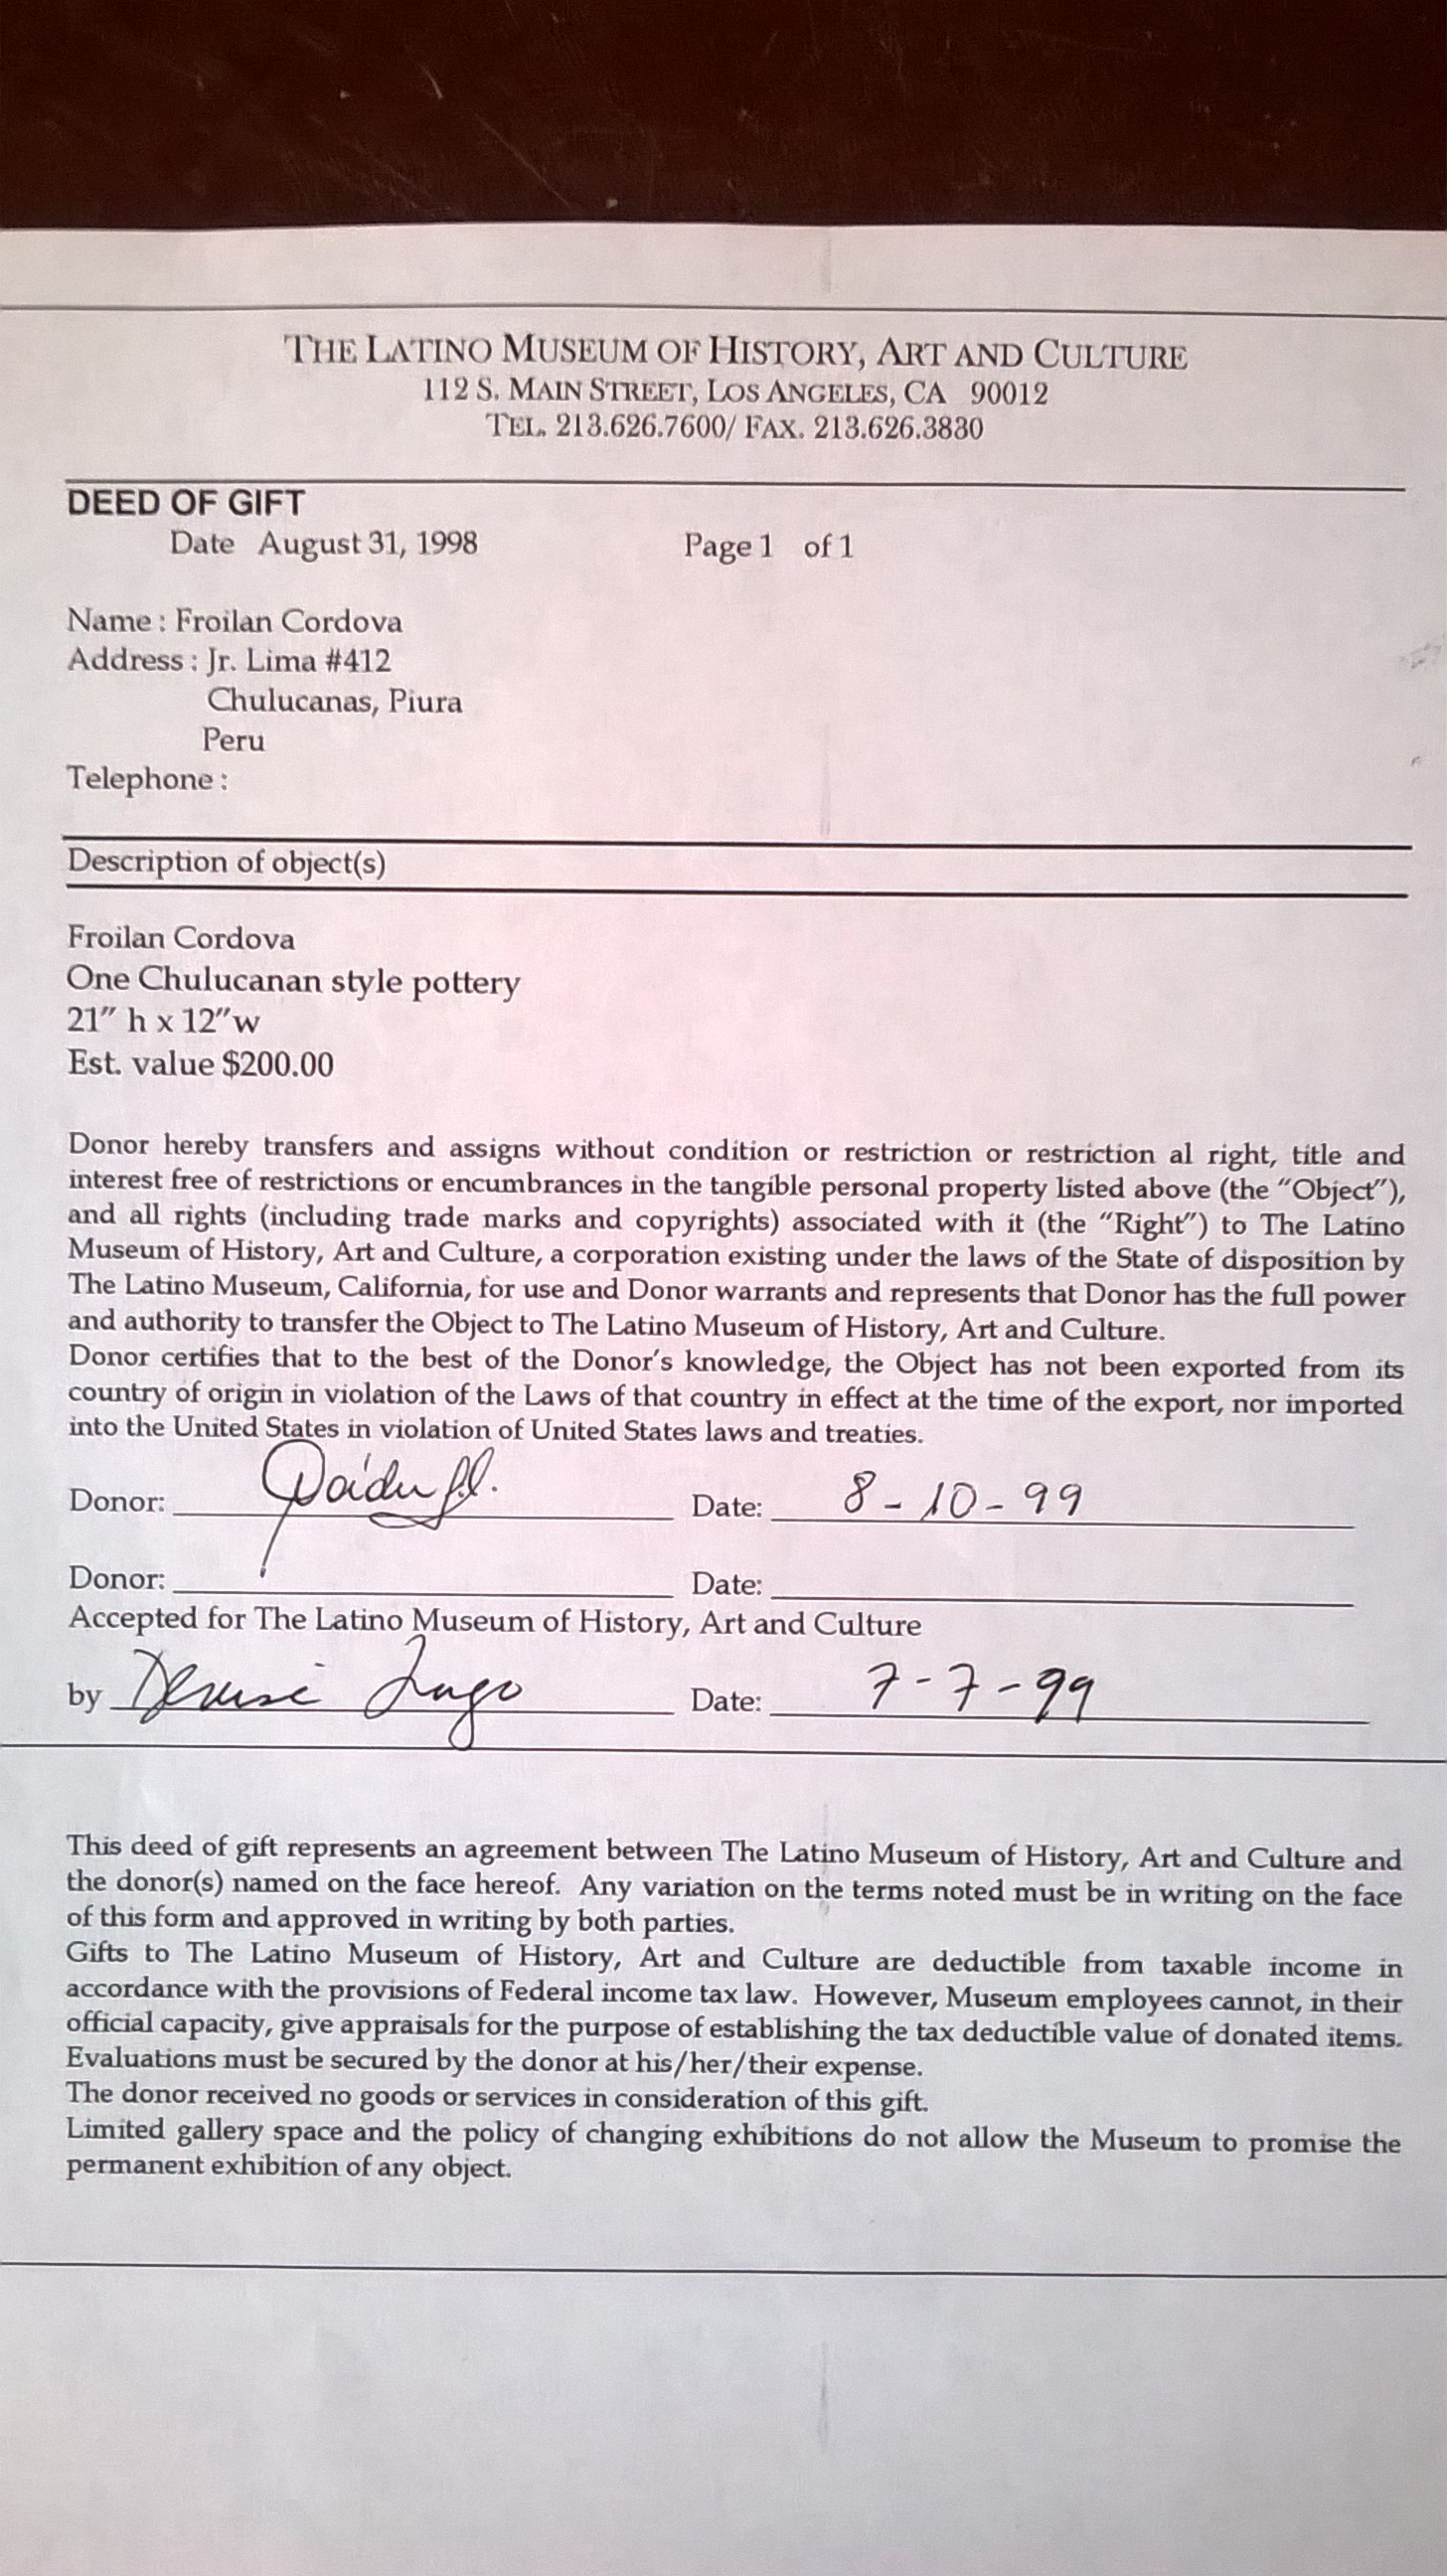 THE LATINO MUSEUM OF HISTORY, ART AND CULTURE
112 S. MAIN STREET, LOS ANGELES, CA 90012
TEL. 213.626.7600/ FAX. 213.626.3830
DEED OF GIFT
Date August 31, 1998 Page 1 of 1
Name : Froilan Cordova
Address : Jr. Lima #412
Chulucanas, Piura
Peru
Telephone :
Description of object(s)
Froilan Cordova
One Chulucanan style pottery
21" h x 12"w
Est. value $200.00
Donor hereby transfers and assigns without condition or restriction or restriction al right, title and
interest free of restrictions or encumbrances in the tangible personal property listed above (the "Object"),
and all rights (including trade marks and copyrights) associated with it (the "Right") to The Latino
Museum of History, Art and Culture, a corporation existing under the laws of the State of disposition by
The Latino Museum, California, for use and Donor warrants and represents that Donor has the full power
and authority to transfer the Object to The Latino Museum of History, Art and Culture.
Donor certifies that to the best of the Donor's knowledge, the Object has not been exported from its
country of origin in violation of the Laws of that country in effect at the time of the export, nor imported
into the United States in violation of United States laws and treaties.
Donor: Date: 8-10-99
Donor: Date:
Accepted for The Latino Museum of History, Art and Culture
by Denise Lugo Date: 7-7-99
This deed of gift represents an agreement between The Latino Museum of History, Art and Culture and
the donor(s) named on the face hereof. Any variation on the terms noted must be in writing on the face
of this form and approved in writing by both parties.
Gifts to The Latino Museum of History, Art and Culture are deductible from taxable income in
accordance with the provisions of Federal income tax law. However, Museum employees cannot, in their
official capacity, give appraisals for the purpose of establishing the tax deductible value of donated items.
Evaluations must be secured by the donor at his/her/their expense.
The donor received no goods or services in consideration of this gift.
Limited gallery space and the policy of changing exhibitions do not allow the Museum to promise the
permanent exhibition of any object.